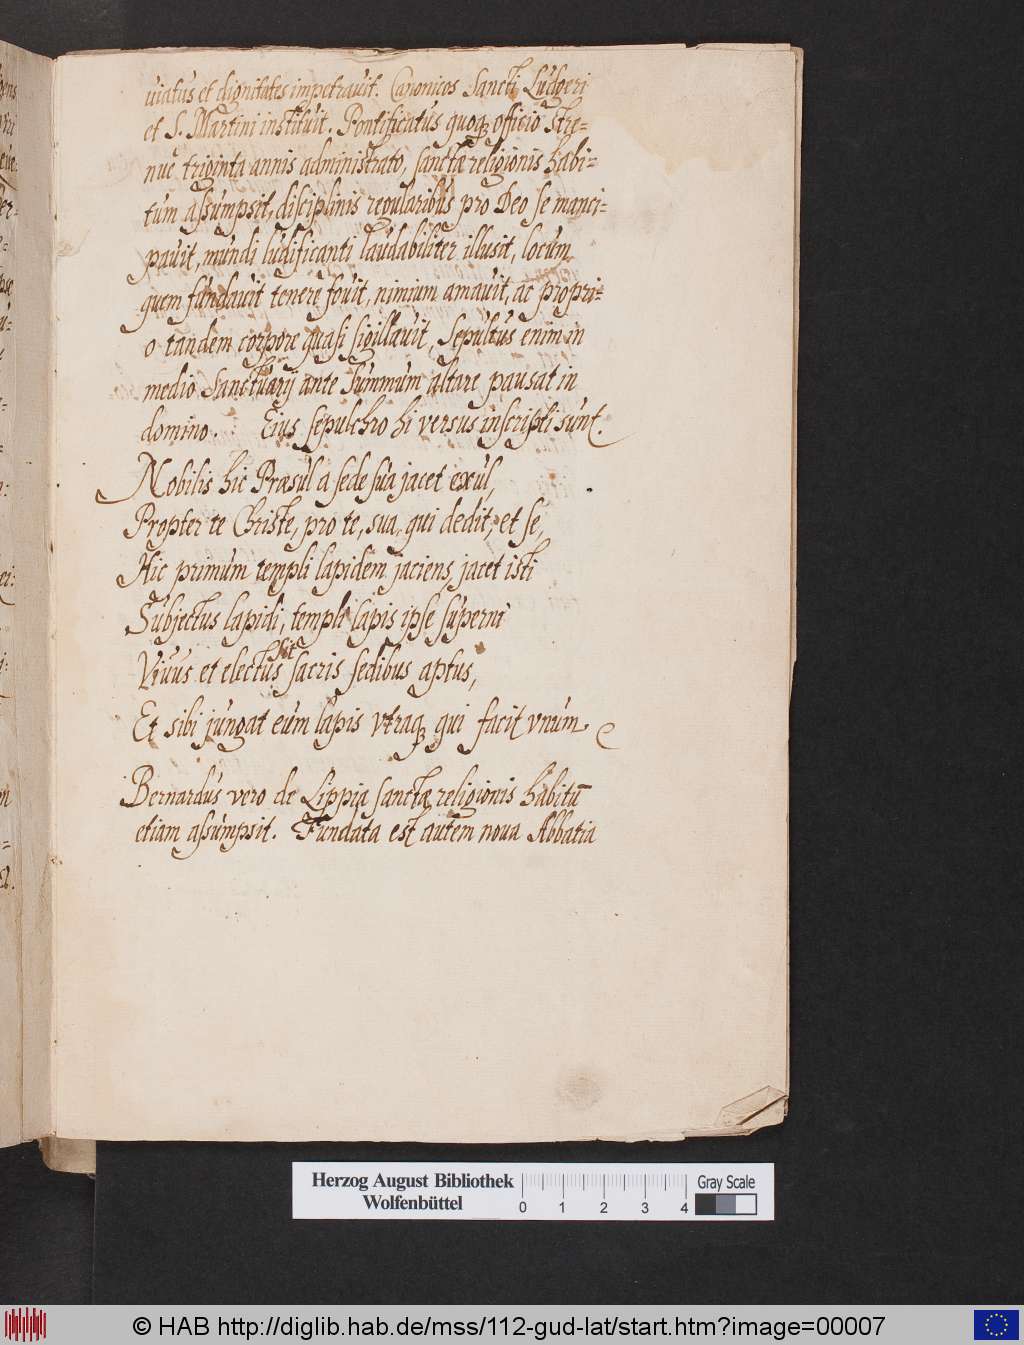 uiatus et dignitates impetrauit. Canonicos Sancti Ludgeri
et S. Martini instituit. Pontificatus quoq; officio stre=
nue triginta annis administrato, sanctæ religionis habi=
tum assumpsit, disciplinis regularibus pro Deo se manci=
pauit, mundi ludificanti laudabiliter illusit, locum
quem fundauit tenere fouit, nimium amauit, ac propri=
o tandem corpore quasi sigillauit, Sepultus enim in
medio Sanctuarij ante Summum altare pausat in
domino. Eius sepulchro hi versus inscripti sunt.
Nobilis hic Præsul a sede sua jacet exul,
Propter te Christe, pro te, sua qui dedit, et se,
Hic primum templi lapidem jaciens, jacet isti
Subjectus lapidi, templi lapis ipse superni
Viuus et electus sit sacris sedibus aptus,
Et sibi jungat eum lapis vtraq; qui facit vnum.
Bernardus vero de Lippia sanctæ religionis habitū
etiam assumpsit. Fundata est autem noua Abbatia
Herzog August Bibliothek
Wolfenbüttel
0 1 2 3 4
Gray Scale
© HAB http://diglib.hab.de/mss/112-gud-lat/start.htm?image=00007